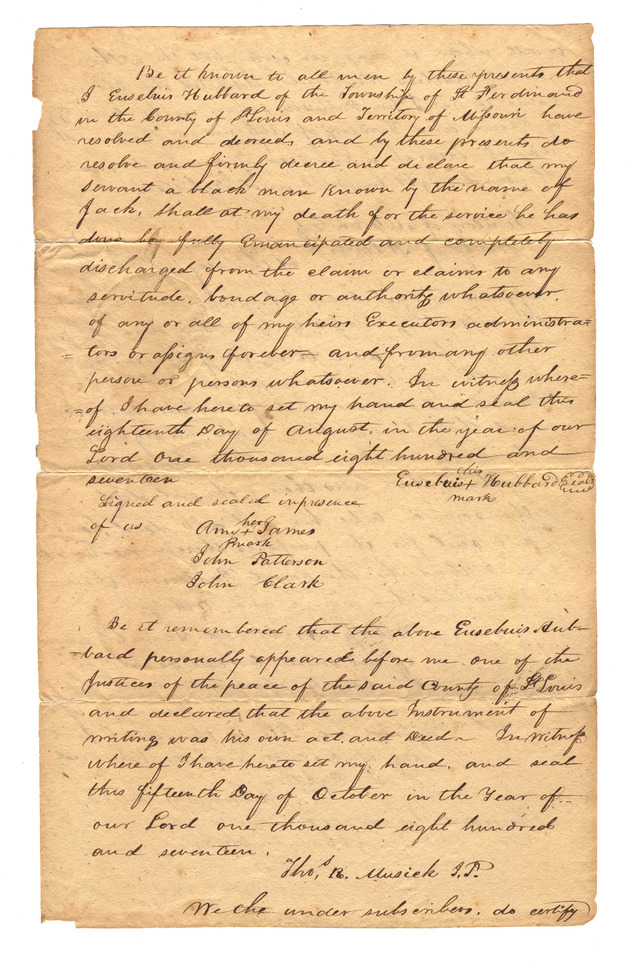 Be it known to all men by these presents that
I Eusebius Hubbard of the Township of St Ferdinand
in the County of St Louis and Territory of Missouri have
resolved and decreed, and by these presents do
resolve and firmly decree and declare that my
servant a black man known by the name of
Jack, shall at my death for the service he has
done be fully Emancipated and completely
discharged from the claim or claims to any
servitude, bondage or authority whatsoever,
of any or all of my heirs Executors administra=
= tors or assigns forever - and from any other
person or persons whatsoever. In witness where=
= of I have hereto set my hand and seal this
eighteenth Day of August, in the year of our
Lord One thousand eight hundred and
seventeen Eusebius his + mark Hubbard seal
Signed and sealed in presence
of us Ann her + mark James
John Patterson
John Clark
Be it remembered that the above Eusebuis Hub-
-bard personally appeared before me one of the
Justices of the peace of the said County of St Louis
and declared that the above Instrument of
writing was his own act and Deed - In Witness
where of I have hereto set my hand, and seal
this fifteenth Day of October in the Year of
our Lord one thousand eight hundred
and seventeen.
Thos. R. Musick J.P.
We the under subscribers, do certify